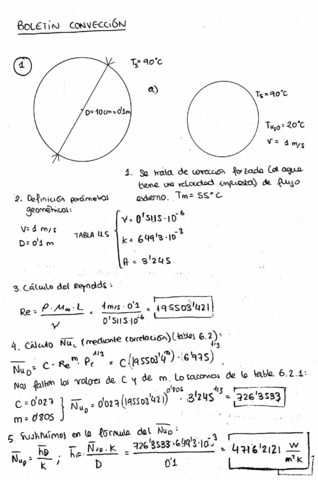 BOLETÍN CONVECCIÓN
1
Ts=90ºC
D=10cm=0'1m
a)
Ts=90ºC
TH2O=20ºC
V= 1 m/s
1. Se trata de convección forzada (el agua
tiene una velocidad impuesta) de flujo
externo. Tm = 55ºC
2. Definición parámetros
geométricos:
V=1 m/s
D=0'1m
TABLA 4.5
ν=0'5115·10⁻⁶
k= 649'3·10⁻³
Pr= 3'245
3. Cálculo del Reynolds:
Re = ρ·μm·L / ν = 1m/s·0'1 / 0'5115·10⁻⁶ = 195503'421
4. Cálculo Nu, (mediante correlación) (tables 6.2):
NuD = C·Re^m·Pr^1/3 = C(195503'4^m)·(6'975)^1/3
Nos faltan los valores de C y de m. Lo sacamos de la table 6.2.1:
C=0'027
m=0'805
NuD = 0'027(195503'421)^0'805·3'245^1/3 = 726'3533
5. Sustituimos en la fórmula del NuD:
NuD = hD/k ; h = NuD·k / D = 726'3533·649'3·10⁻³ / 0'1 = 4716'2121 W/m²k